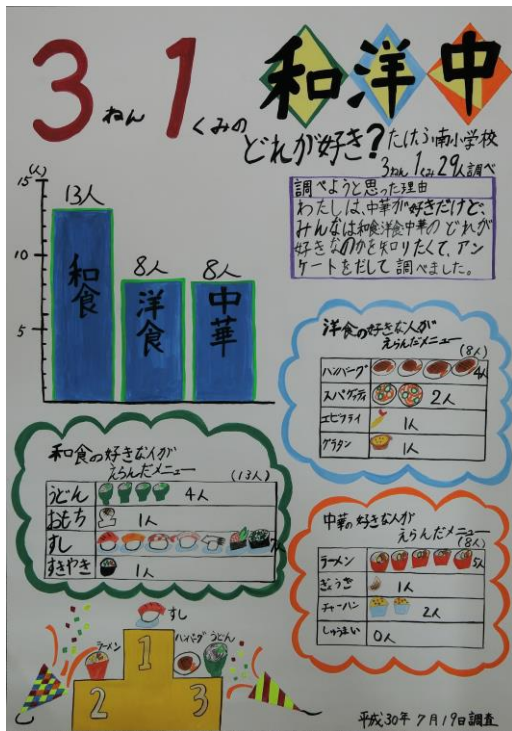 3ねん1くみの
和洋中
どれが好き?
たけふ南小学校
3ねん1くみ29人調べ
調べようと思った理由
わたしは、中華が好きだけど、
みんなは和食洋食中華のどれが
好きなのかを知りたくて、アン
ケートをだして調べました。
(人)
15
10
5
13人
和食
8人
洋食
8人
中華
洋食の好きな人が
えらんだメニュー
(8人)
ハンバーグ 4人
スパゲッティ 2人
エビフライ 1人
グラタン 1人
和食の好きな人が
えらんだメニュー
(13人)
うどん 4人
おもち 1人
すし 7人
すきやき 1人
中華の好きな人が
えらんだメニュー
(8人)
ラーメン 5人
ぎょうざ 1人
チャーハン 2人
しゅうまい 0人
すし
ラーメン
ハンバーグ
うどん
1
2
3
平成30年7月19日調査